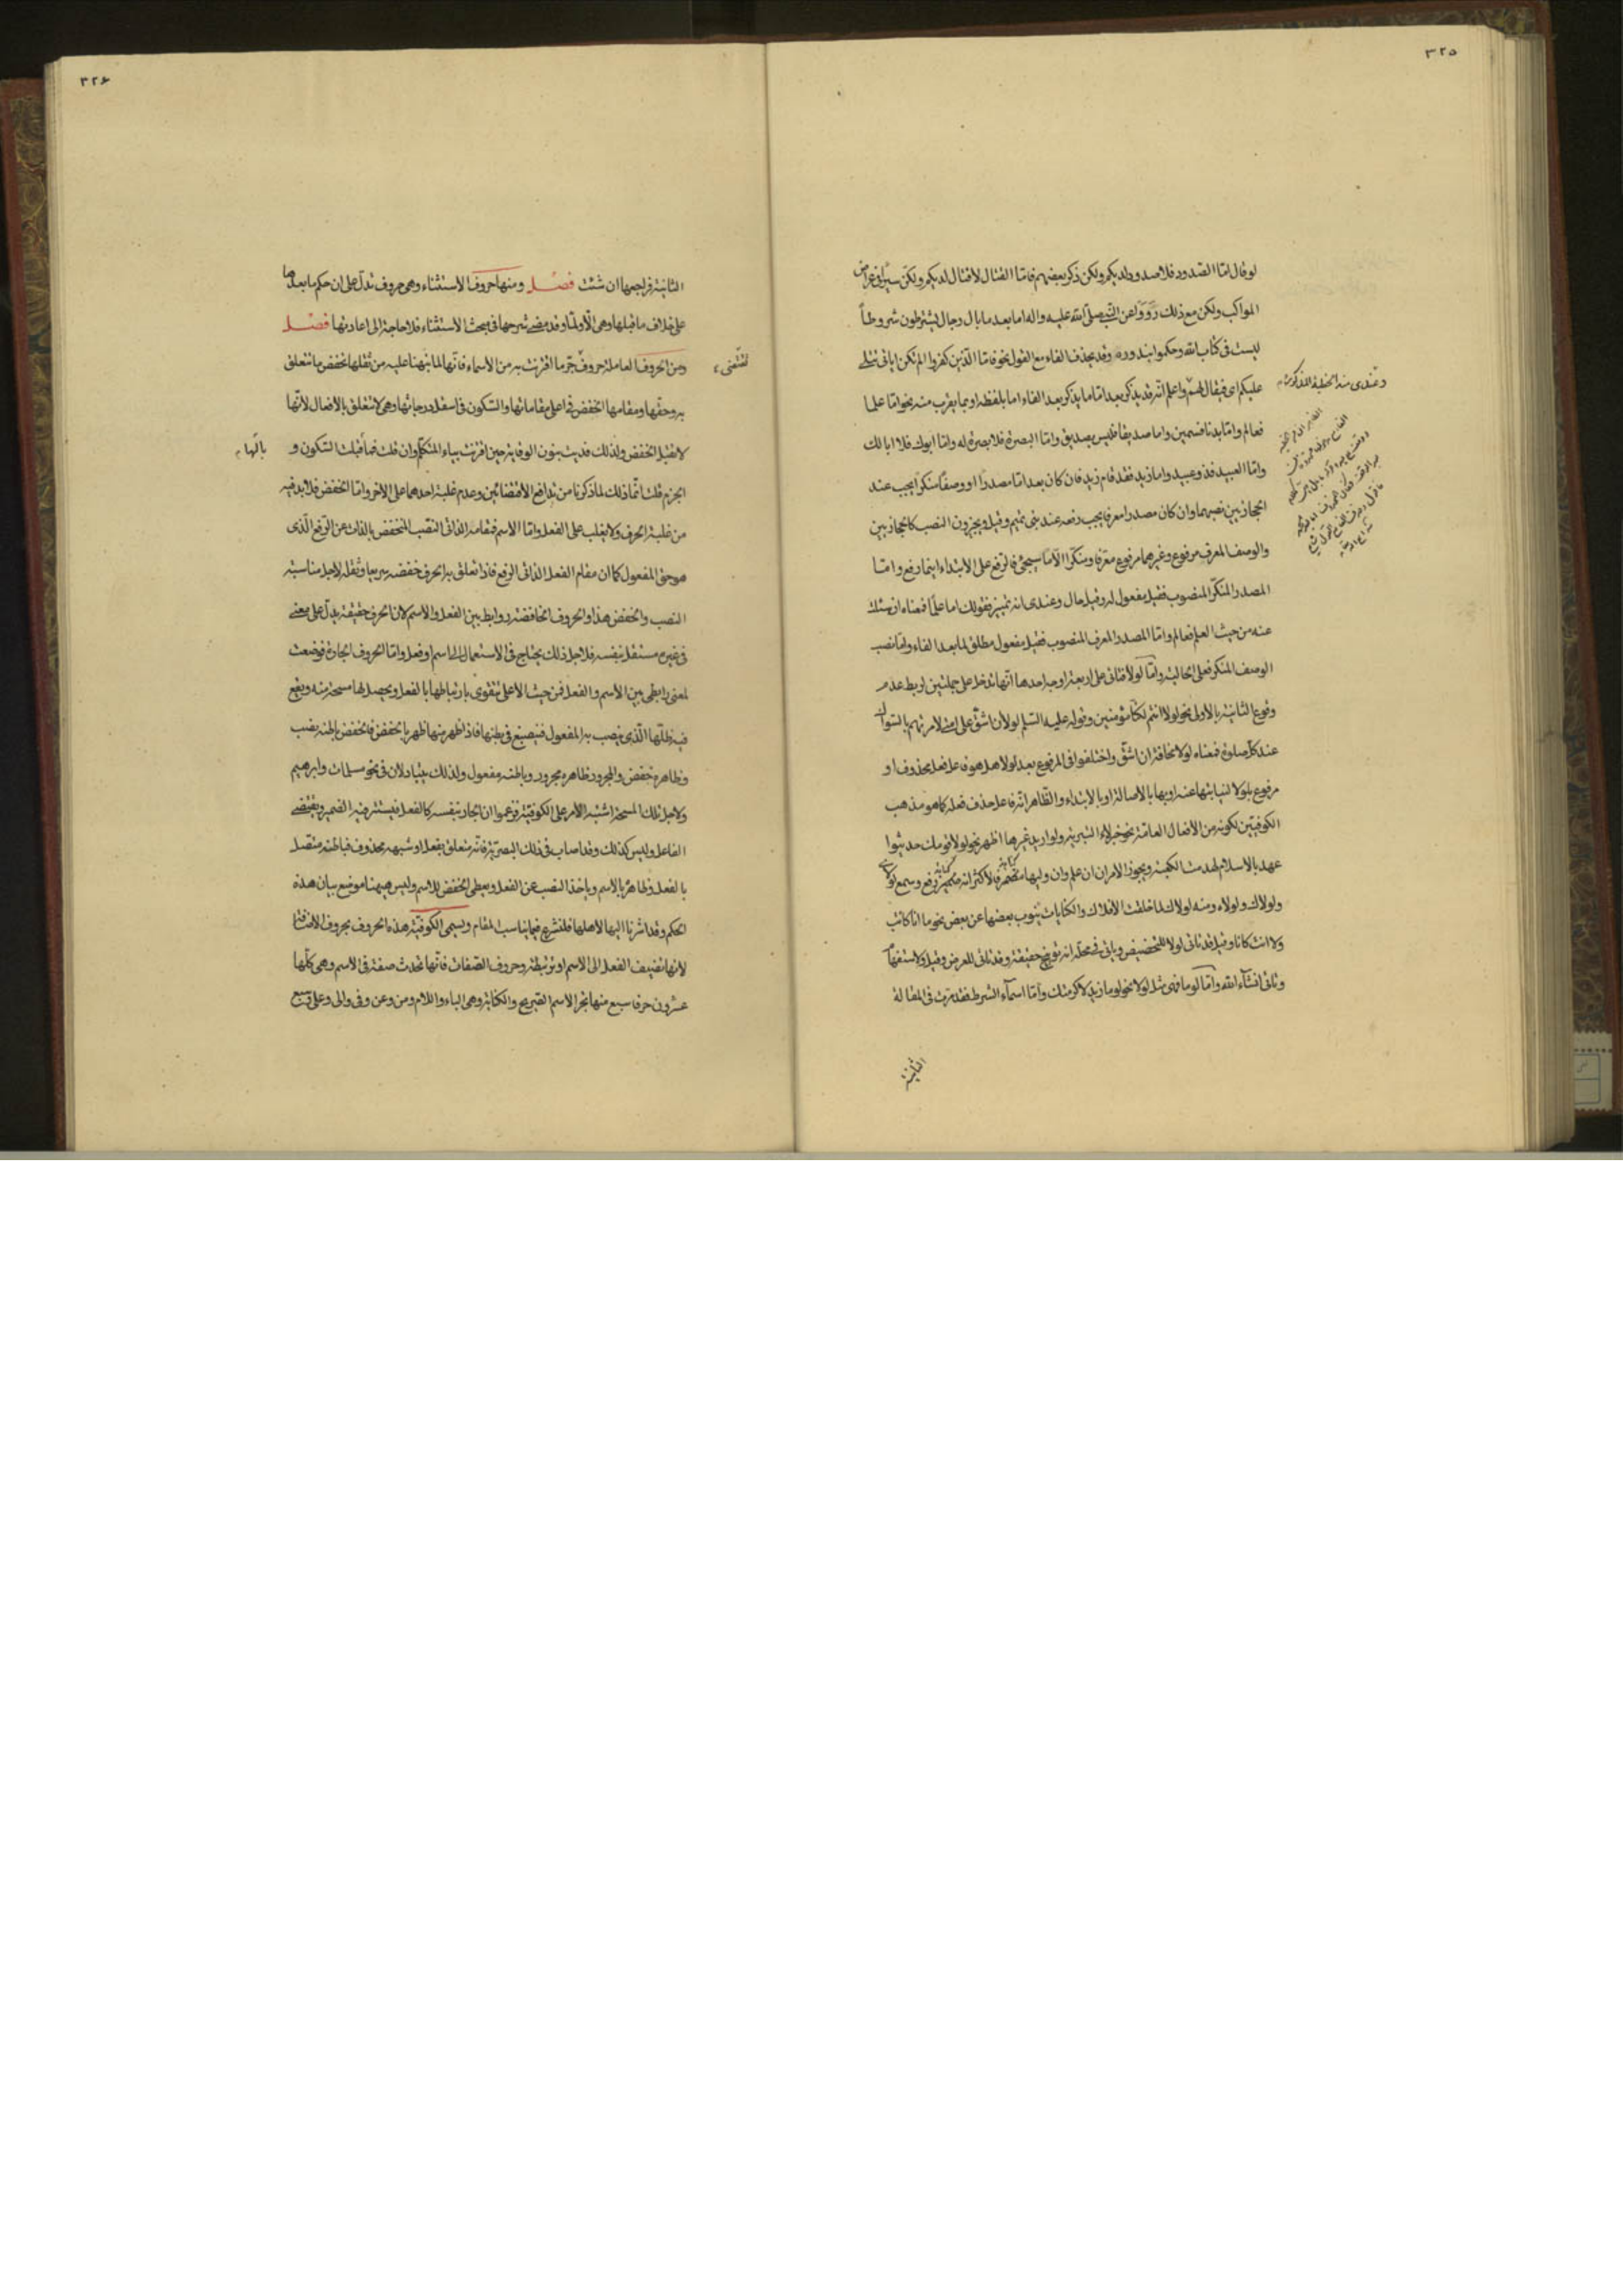 ٣٢٥
لو قال اما الصدود فلا صدود لديكم ولكن ذكر بعضهم فاما القتال لا قتال لديكم ولكن سيرا في عراض
المواكب ولكن مع ذلك رووا عن النبي صلى الله عليه واله اما بعد ما بال رجال يشترطون شروطاً
ليست في كتاب الله وحكموا بندوره وقد يحذف الفاء مع القول نحو فاما الذين كفروا الم تكن اياتي تتلى
عليكم اي فيقال لهم واعلم انه قد يذكر بعد اما ما يذكر بعد الفاء اما بلفظه او بما يقرب منه نحو اما علما
فعالم واما بدنا فسمين واما صديقا فليس بصديق واما البصرة فلا بصرة له واما ابوك فلا ابا لك
واما العبيد فذو عبيد واما زيد فقد قام زيد فان كان بعد اما مصدراً او وصفاً منكراً يجب عند
الحجازيين نصبهما وان كان مصدرا معرفا يجب رفعه عند بني تميم وقيل ويجيزون النصب كالحجازيين
والوصف المعرف مرفوع وغيرهما مرفوع معرفا ومنكرا الا ما سيجئ فالرفع على الابتداء اينما رفع واما
المصدر المنكر المنصوب فقيل مفعول له وقيل حال وعندي انه تمييز فقولك اما علماً فمعناه ان سئلت
عنه من حيث العلم فعالم واما المصدر المعرف المنصوب فقيل مفعول مطلق لما بعد الفاء واما نصب
الوصف المنكر فعلى الحالية واما لولا فتاتي على اربعة اوجه احدها انها تدخل على جملتين لربط عدم
وقوع الثانية بالاولى نحو لولا انتم لكنا مؤمنين وقوله عليه السلم لولا ان اشق على امتي لامرتهم بالسواك
عند كل صلوة فمعناه لولا مخافة ان اشق واختلفوا في المرفوع بعد لولا هل هو فاعل فعل محذوف او
مرفوع بلولا لنيابتها عنه او بها بالاصالة او بالابتداء والظاهر انه فاعل حذف فعله كما هو مذهب
الكوفيين لكونه من الافعال العامة نحو خبر لاء التبرية ولو اريد غيرها اظهر نحو لولا قومك حديثوا
عهد بالاسلام لهدمت الكعبة ويجوز الامران ان علم وان وليها مضمر فالاكثر انه ضمير رفع وسمع لولاي
ولولاك ولولاه ومنه لولاك لما خلقت الافلاك والكنايات ينوب بعضها عن بعض نحو ما انا كانت
ولا انت كانا وقيل قد تاتي لولا للتحضيض وياتي في محله انه توبيخ حقيقة وقد تاتي للعرض وقيل والاستفهام
وتاتي انشاء الله واما لوما فهي مثل لولا نحو لوما زيد لاكرمتك واما اسماء الشرط فقد مرت في المقالة
الثانية
وعندي منه الخطبة المذكورة
٣٢٦
الثانية فراجعها ان شئت فصل ومنها حروف الاستثناء وهي حروف تدل على ان حكم ما بعدها
على خلاف ما قبلها وهي الا ولما وقد مضى شرحها في بحث الاستثناء فلا حاجة الى اعادتها فصل
ومن الحروف العاملة حروف جر ما اقترنت به من الاسماء فانها لما نبهنا عليه من ثقلها تخفض ما تتعلق
به وحقها ومقامها الخفض في اعلى مقاماتها والسكون في اسفل درجاتها وهي لا تتعلق بالافعال لانها
لا تقبل الخفض ولذلك فديت بنون الوقاية حين اقترنت بياء المتكلم وان قلت فما قبلت السكون و
الجزم قلت انما ذلك لما ذكرنا من تدافع الاقتضائين وعدم غلبة احدهما على الاخر واما الخفض فلا بد فيه
من غلبة الحرف ولا يغلب على الفعل واما الاسم فمقامه الذاتي النصب المنخفض بالذات عن الرفع الذي
هو حق المفعول كما ان مقام الفعل الذاتي الرفع فاذا تعلق به الحرف خفضه سريعا وثقله لاجل مناسبة
النصب والخفض هذا والحروف الخافضة روابط بين الفعل والاسم لان الحرف حقيقة يدل على معنى
في غيره مستقل بنفسه فلاجل ذلك يحتاج في الاستعمال الى اسم او فعل واما الحروف الجارة فوضعت
لمعنى رابطي بين الاسم والفعل فمن حيث الاعلى تتقوى بارتباطها بالفعل ويحصل لها مسحة منه ويقع
فيه ظلها الذي ينصب به المفعول فينصبغ في بطنها فاذا ظهر منها ظهر بالخفض فالخفض باطنه نصب
وظاهره خفض والمجرور ظاهره مجرور وباطنه مفعول ولذلك يتبادلان في نحو مسلمات وابرهيم
ولاجل تلك المسحة اشتبه الامر على الكوفية فزعموا ان الجار بنفسه كالفعل فيستتر فيه الضمير ويقتضى
الفاعل وليس كذلك وقد اصاب في ذلك البصرية فانه متعلق بفعل او شبهه محذوف فباطنه متصل
بالفعل وظاهره بالاسم وياخذ النصب عن الفعل ويعطي الخفض للاسم وليس هيهنا موضع بيان هذه
الحكم وقد اشرنا اليها لاهلها فلنشرع فيما يناسب المقام ويسمى الكوفية هذه الحروف بحروف الاضافة
لانها تضيف الفعل الى الاسم او تربطه وحروف الصفات فانها تحدث صفة في الاسم وهي كلها
عشرون حرفا سبع منها تجر الاسم الصريح والكناية وهي الباء واللام ومن وعن وفي والى وعلى وتسع
بالها